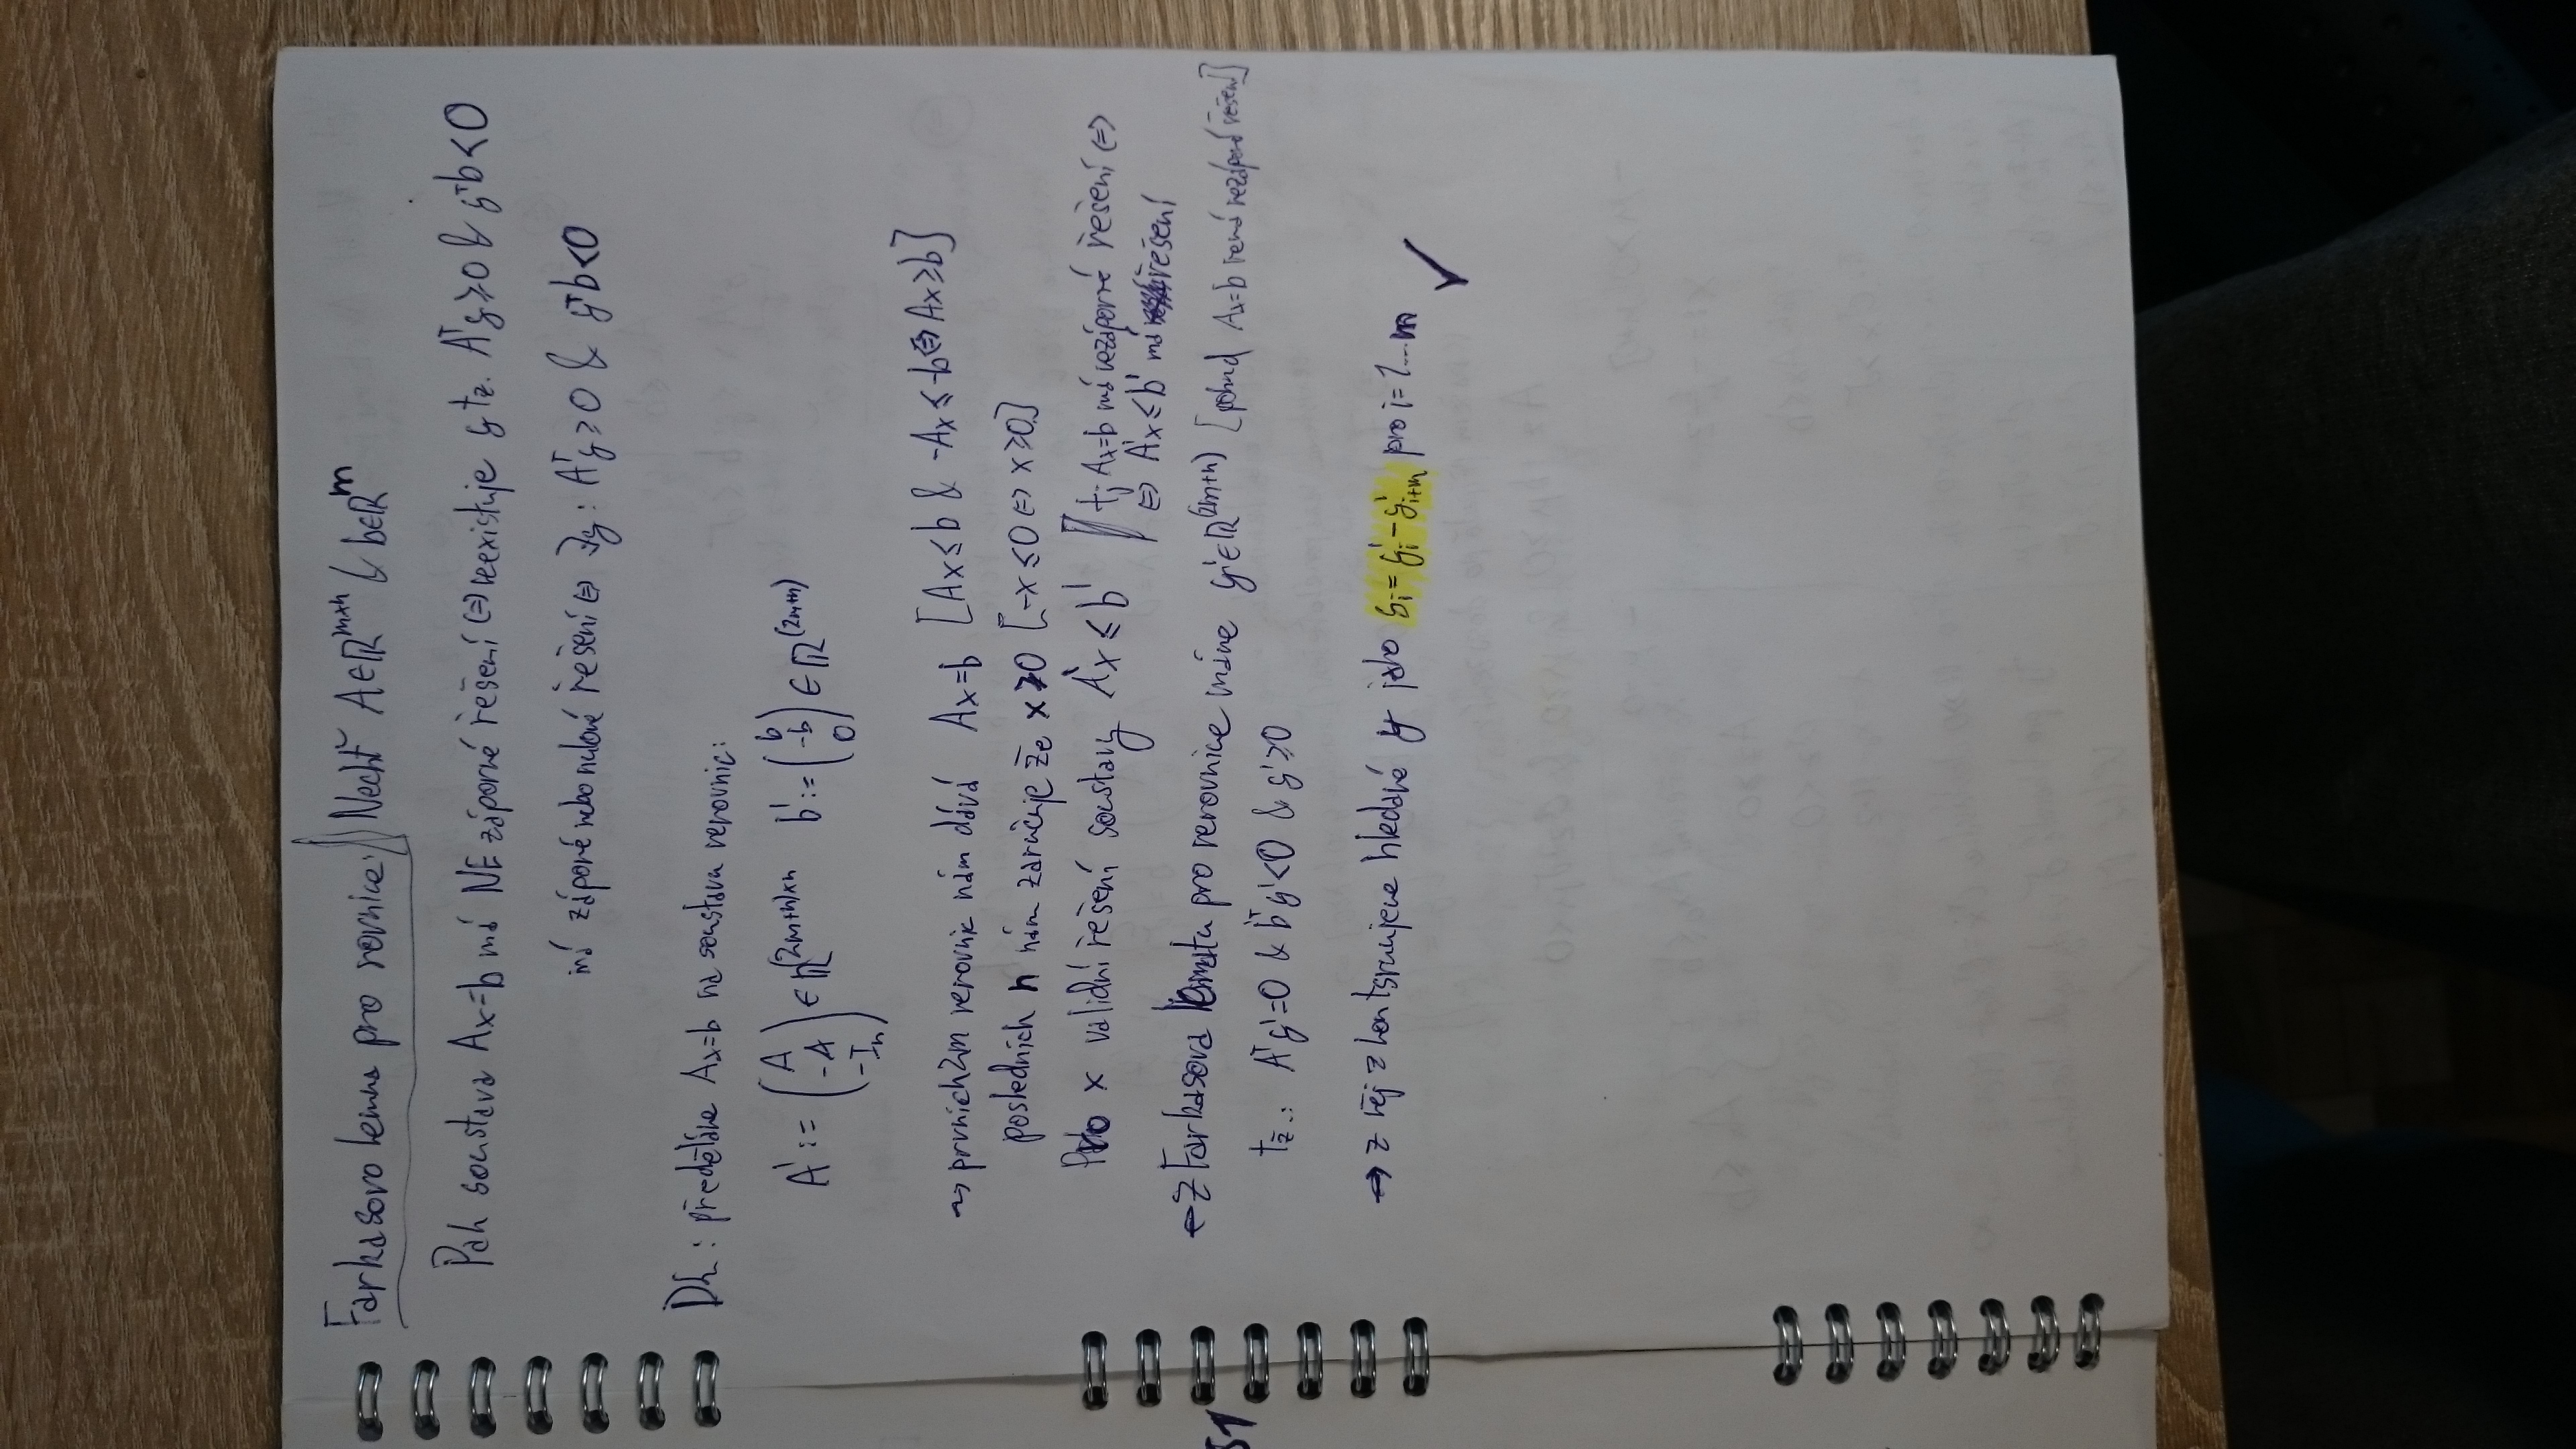 Farkasovo lemma pro rovnice: Nechť A∈ℝ^{m×n} & b∈ℝ^m
Pak soustava Ax=b má NEzáporné řešení (=) neexistuje y tž. A^T y ≥ 0 & y^T b < 0
má záporné nebo nulové řešení (=) ∃y: A^T y ≥ 0 & y^T b < 0
Dk: předěláme Ax=b na soustavu nerovnic:
A' := (A / -A / -I_n) ∈ ℝ^{(2m+n)×n} b' := (b / -b / 0) ∈ ℝ^{(2m+n)}
~> prvních 2m nerovnic nám dává Ax=b [Ax≤b & -Ax≤-b (=) Ax≥b]
posledních n nám zaručuje že x≥0 [-x≤0 (=) x≥0]
x validní řešení soustavy A'x≤b'
tj. Ax=b má nezáporné řešení (=)
(=) A'x≤b' má řešení
← Z Farkasova lematu pro nerovnice máme y'∈ℝ^{(2m+n)} [pokud Ax=b nemá nezáporné řešení]
tž.: A'^T y'=0 & b'^T y'<0 & y'≥0
→ z něj zkontsruujeme hledané y jako y_i = y'_i - y'_{i+m} pro i=1...m ✓
51